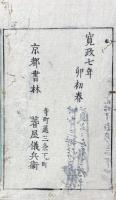 寛政七年
卯初春
京都書林
寺町通三条下ル町
蓍屋儀兵衛